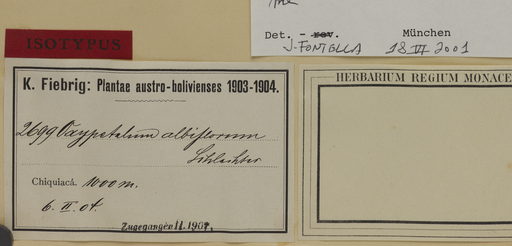 Det. - rev. München
J. FONTELLA 18 VI 2001
ISOTYPUS
K. Fiebrig: Plantae austro-bolivienses 1903-1904.
2699 Oxypetalum albiflorum
Schlechter
Chiquiacá. 1000 m.
6. II. 04.
Zugegangen II. 1907.
HERBARIUM REGIUM MONACE